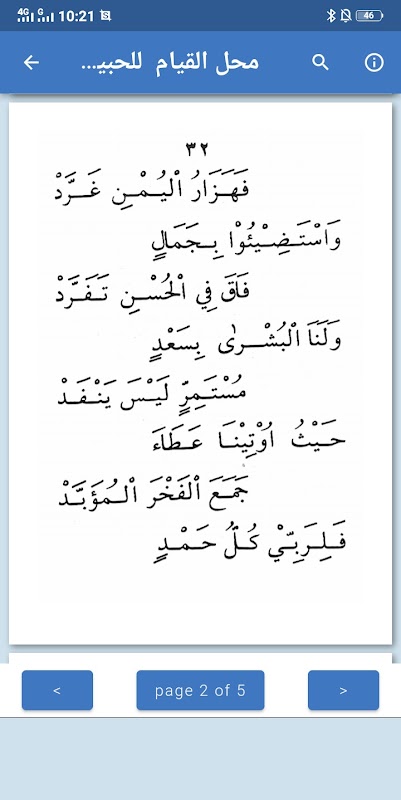 4G G 10:21 46
محل القيام للحبيـ...
٣٢
فَهَزَارُ الْيُمْنِ غَرَّدْ
وَاسْتَضِيْئُوْا بِجَمَالٍ
فَاقَ فِي الْحُسْنِ تَفَرَّدْ
وَلَنَا الْبُشْرٰى بِسَعْدٍ
مُسْتَمِرٍّ لَيْسَ يَنْفَدْ
حَيْثُ اُوْتِيْنَا عَطَاءَ
جَمَعَ الْفَخْرَ الْمُؤَبَّدْ
فَلِرَبِّيْ كُلُّ حَمْدٍ
< page 2 of 5 >